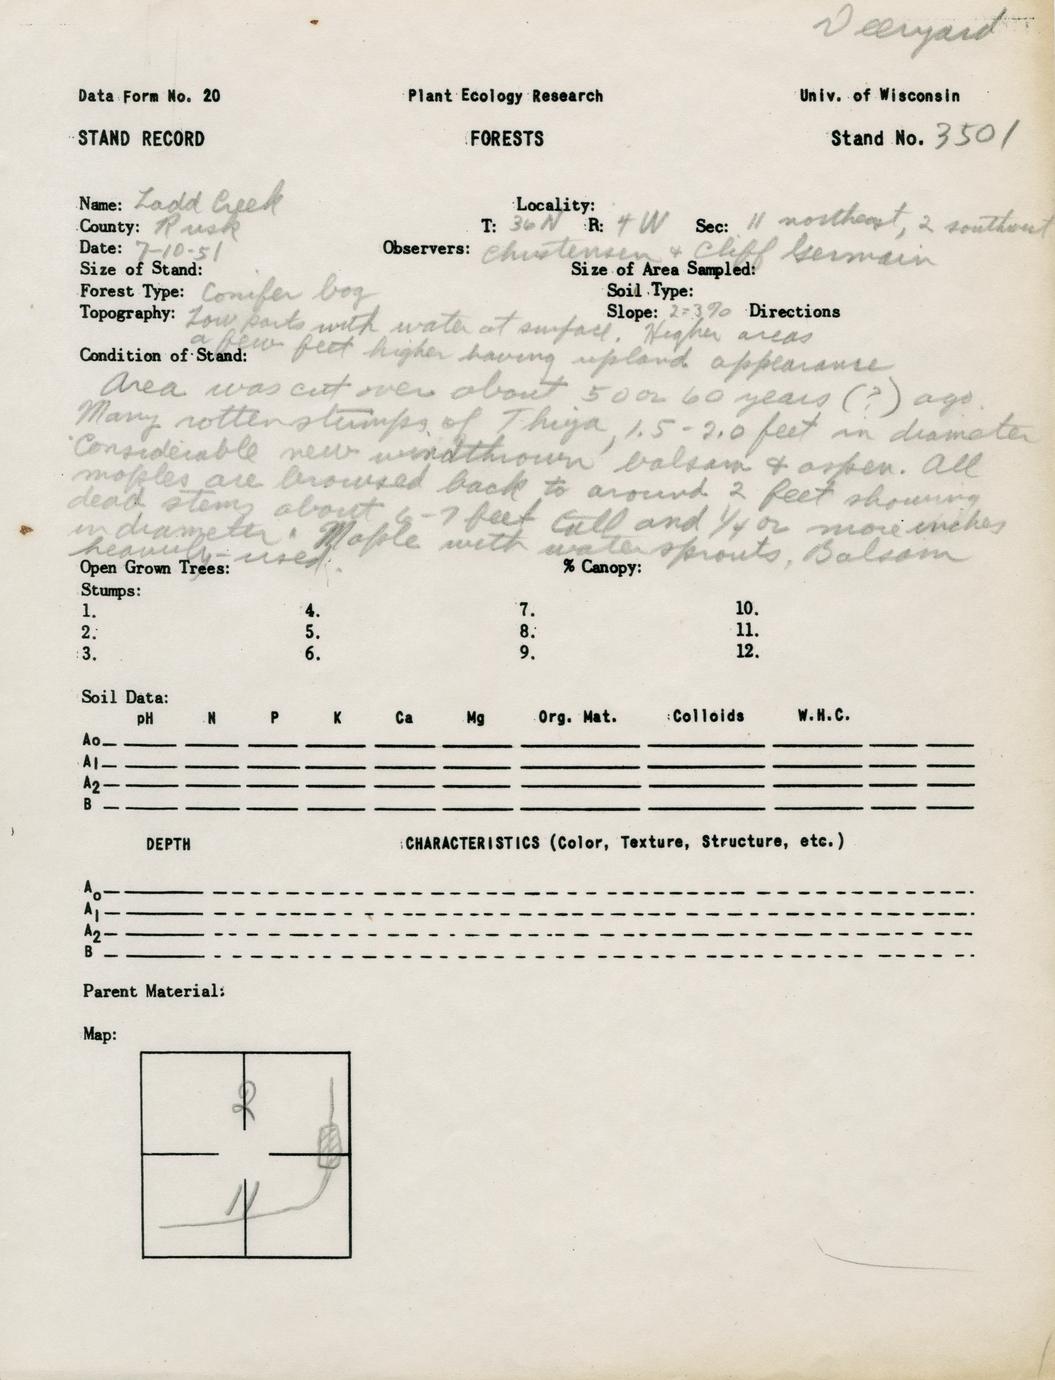 Deeryard
Data Form No. 20 Plant Ecology Research Univ. of Wisconsin
STAND RECORD FORESTS Stand No. 3501
Name: Ladd Creek Locality:
County: Rusk T: 36N R: 4W Sec: 11 northeast, 2 southwest
Date: 7-10-51 Observers: Christensen & Cliff Germain
Size of Stand: Size of Area Sampled:
Forest Type: Conifer bog Soil Type:
Topography: Low parts with water at surface. Higher areas Slope: 2-3% Directions
a few feet higher having upland appearance
Condition of Stand:
Area was cut over about 50 or 60 years (?) ago.
Many rotten stumps of Thuja, 1.5-2.0 feet in diameter
Considerable new windthrown balsam & aspen. All
maples are browsed back to around 2 feet showing
dead stems about 6-7 feet tall and 1/4 or more inches
in diameter. Maple with watersprouts, Balsam
heavily used.
Open Grown Trees: % Canopy:
Stumps:
1. 4. 7. 10.
2. 5. 8. 11.
3. 6. 9. 12.
Soil Data:
pH N P K Ca Mg Org. Mat. Colloids W.H.C.
Ao
A1
A2
B
DEPTH CHARACTERISTICS (Color, Texture, Structure, etc.)
Ao
A1
A2
B
Parent Material:
Map:
2
11